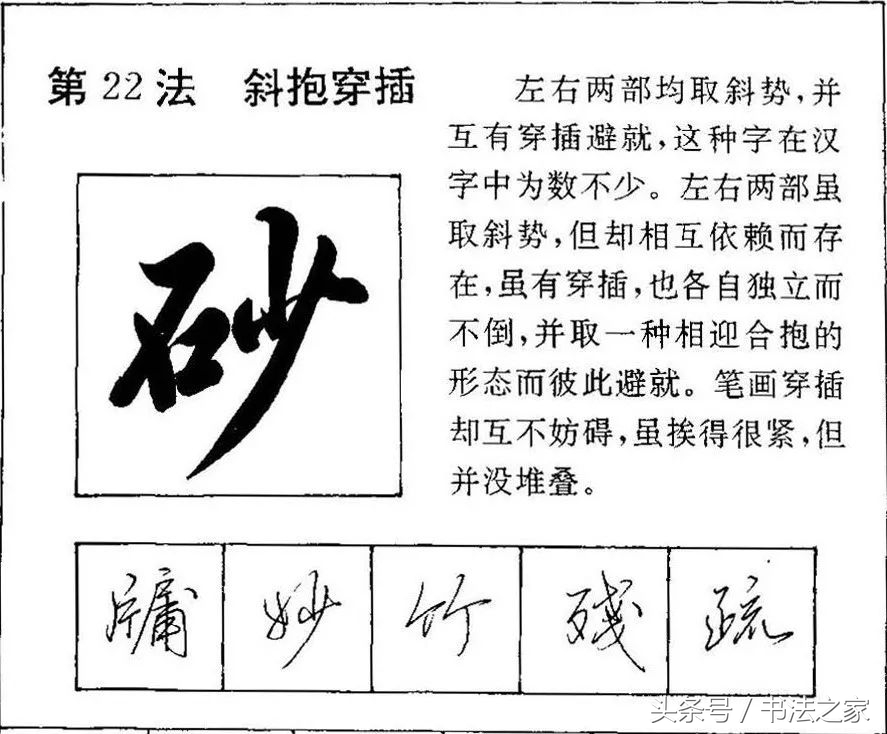 第22法 斜抱穿插
左右两部均取斜势,并
互有穿插避就,这种字在汉
字中为数不少。左右两部虽
取斜势,但却相互依赖而存
在,虽有穿插,也各自独立而
不倒,并取一种相迎合抱的
形态而彼此避就。笔画穿插
却互不妨碍,虽挨得很紧,但
并没堆叠。
砂
牗 妙 竹 殘 疏
头条号 / 书法之家